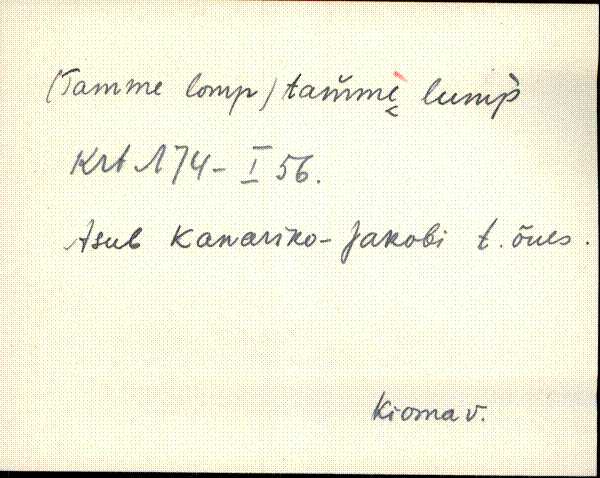 (Tamme lomp) tam̆me̬ lump̀
Krt 174 - I 56.
Asub Kanariko-Jakobi t. õues.
Kioma v.